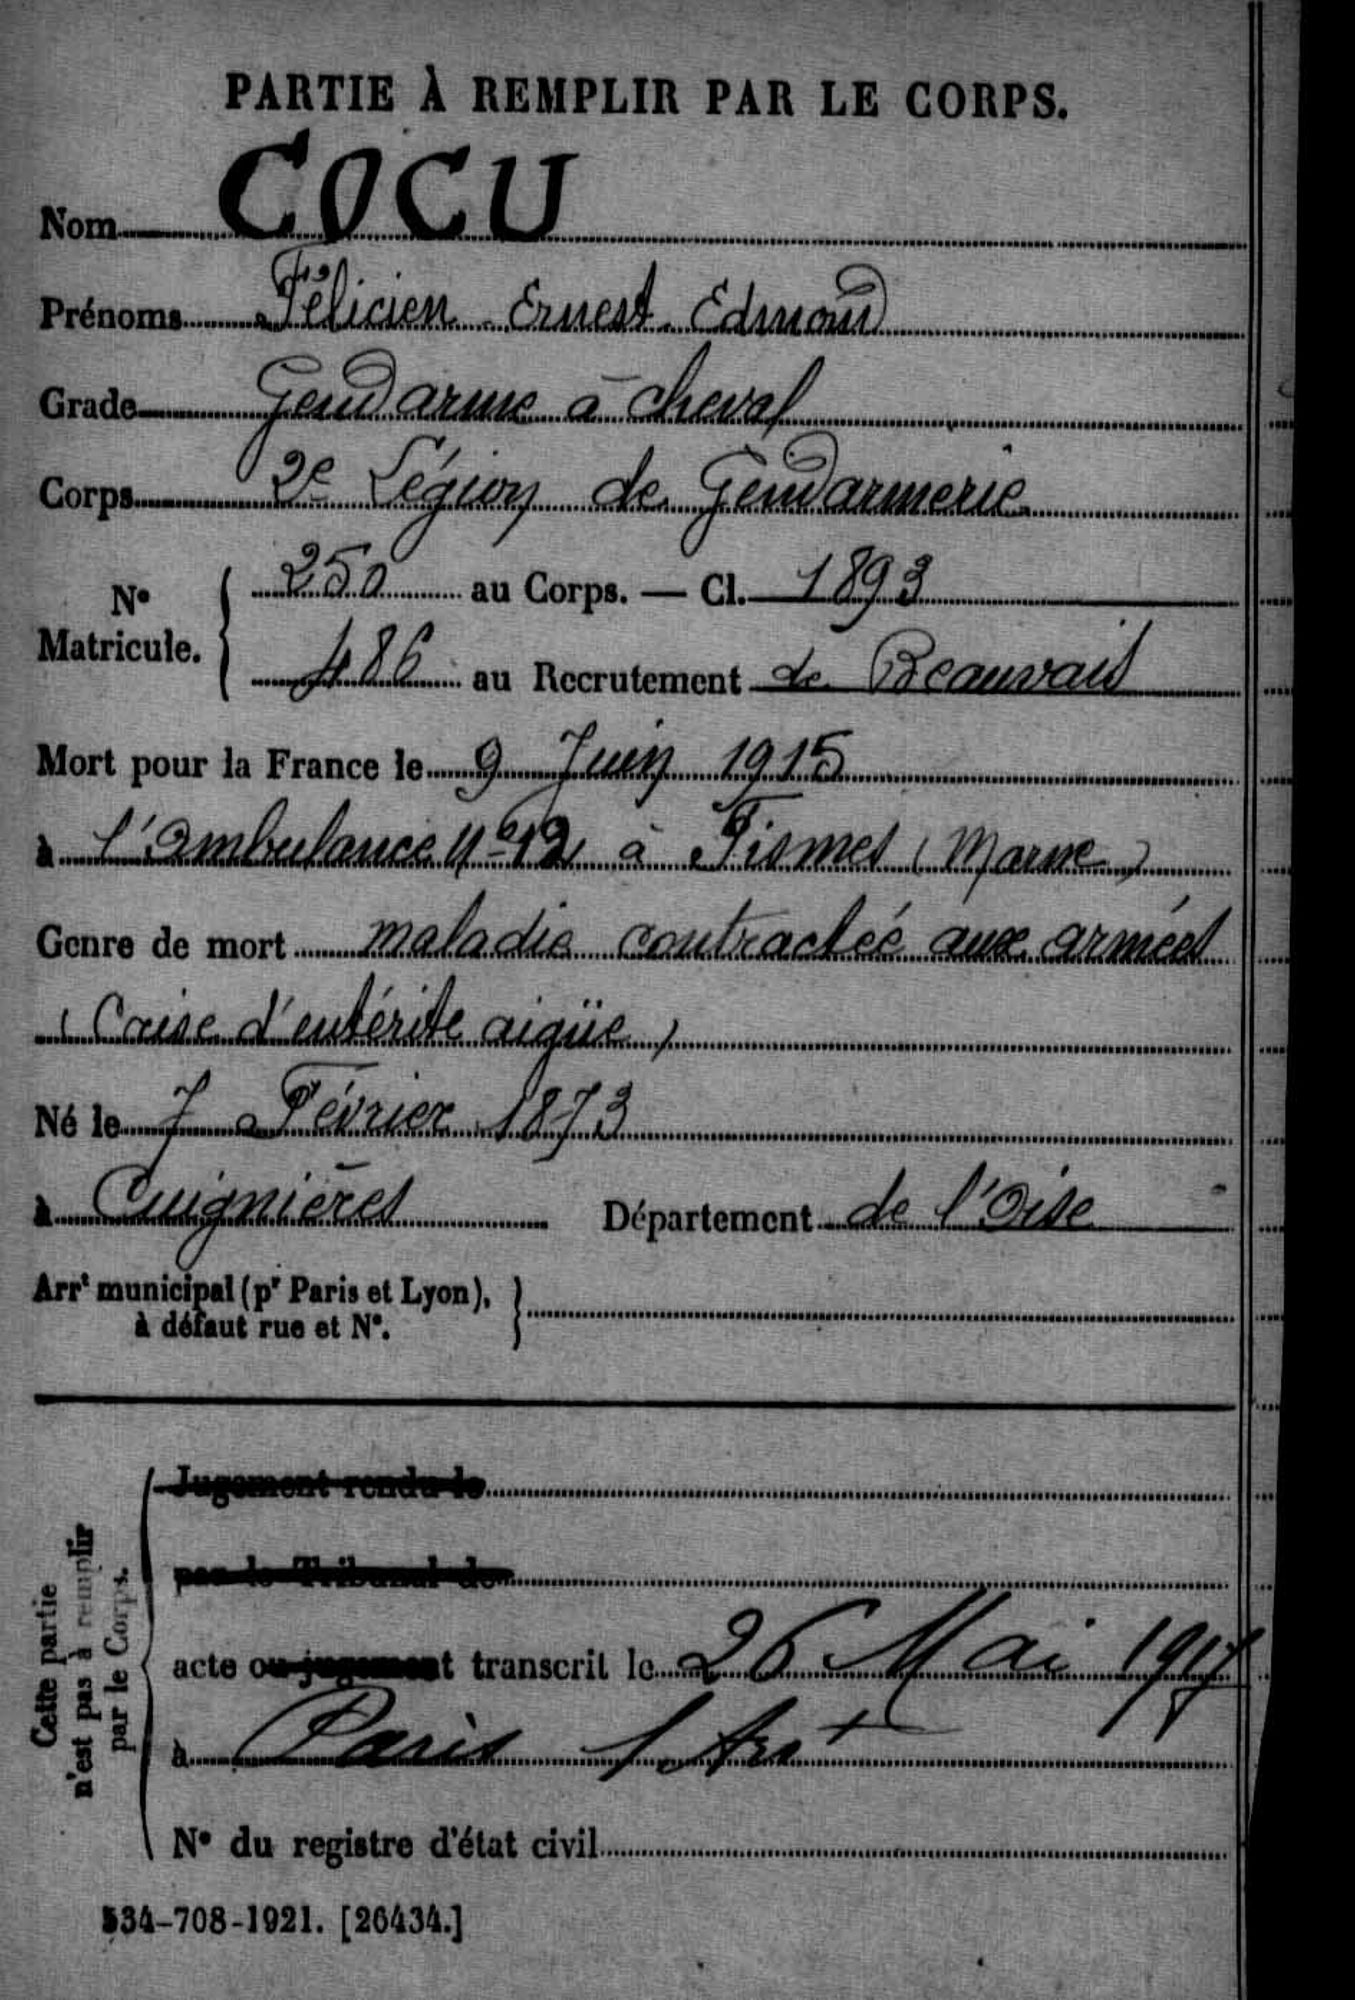 PARTIE À REMPLIR PAR LE CORPS.
Nom COCU
Prénoms Félicien Ernest Edmond
Grade Gendarme à cheval
Corps 2e Légion de Gendarmerie
No Matricule. { 250 au Corps. — Cl. 1893
486 au Recrutement de Beauvais
Mort pour la France le 9 Juin 1915
à l'ambulance No 12 à Fismes (Marne)
Genre de mort maladie contractée aux armées
(Crise d'entérite aigüe)
Né le 7 Février 1873
à Cuignières Département de l'Oise
Arrt municipal (pr Paris et Lyon), }
à défaut rue et No.
Cette partie
n'est pas à remplir
par le Corps.
Jugement rendu le
par le Tribunal de
acte ou jugement transcrit le 26 Mai 1917
à Paris 1 Arrt
No du registre d'état civil
534-708-1921. [26434.]